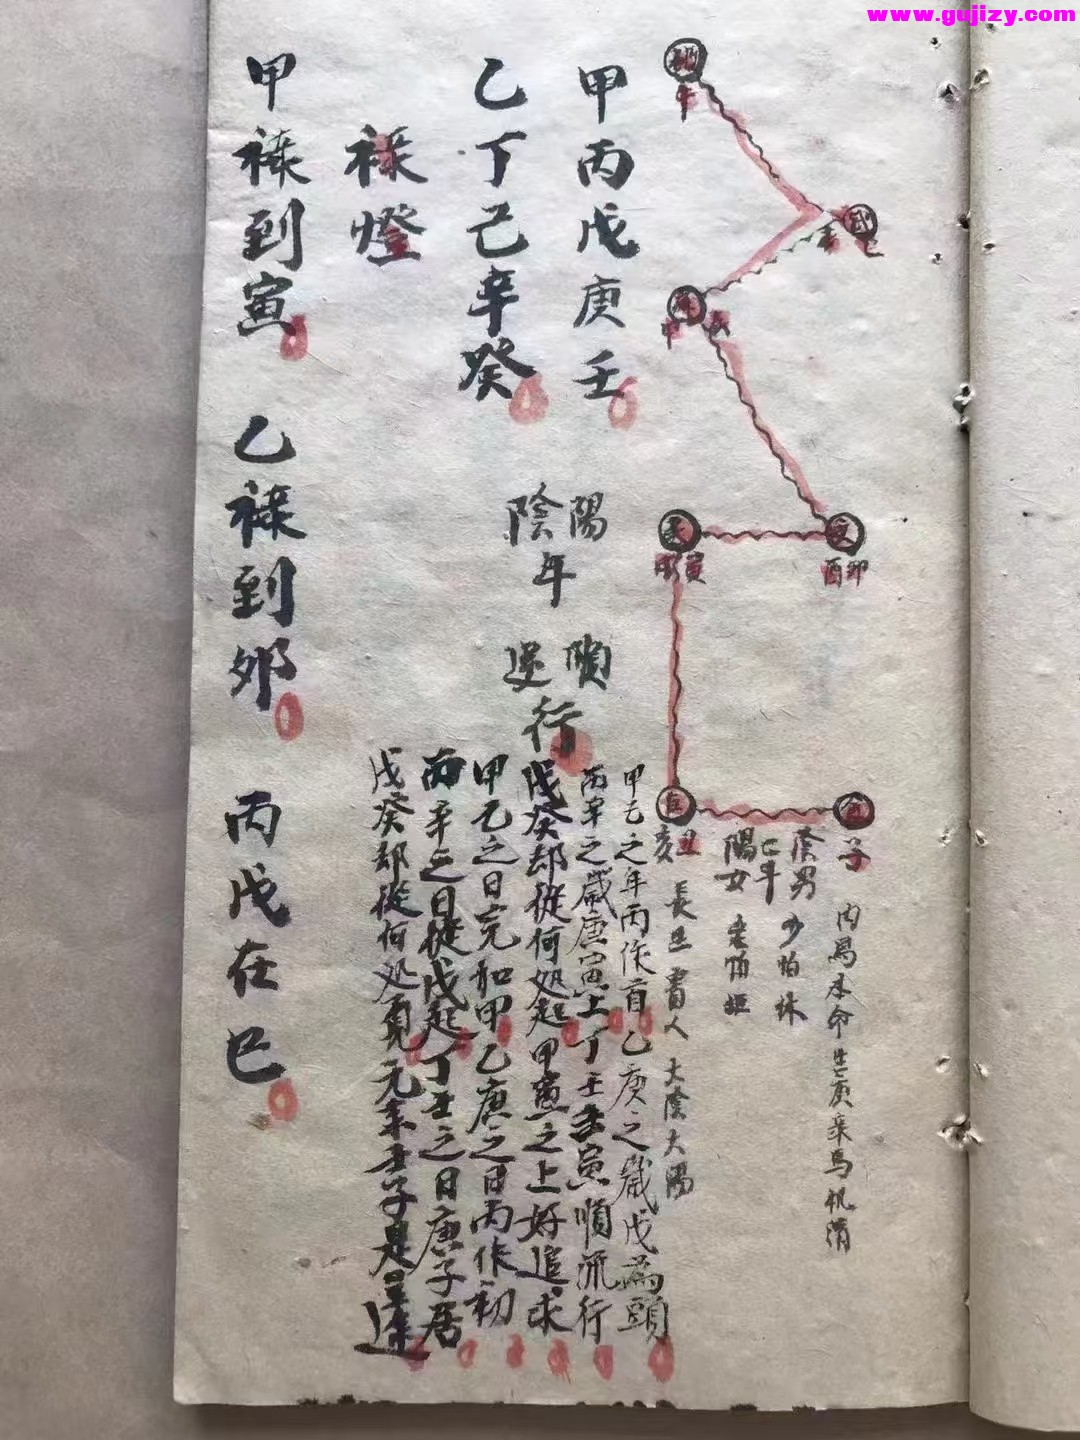 www.gujizy.com
午
巳
未
申
文
寅
酉卯
巨
亥丑
子
內為本命生庚
陰男
少怕
年
陽女
長生
人
大陰大陽
甲丙戊庚壬
陽
順
乙丁己辛癸
陰
年
逆
行
甲乙之年丙作首乙庚之歲戊為頭
丙辛之歲庚寅上丁壬壬寅順流行
戊癸却從何处起甲寅之上好追求
甲乙之日完加甲乙庚之日丙作初
丙辛之日從戊起丁壬之日庚子居
戊癸却從何处覓元來壬子是
祿燈
甲祿到寅
乙祿到卯
丙戊在巳